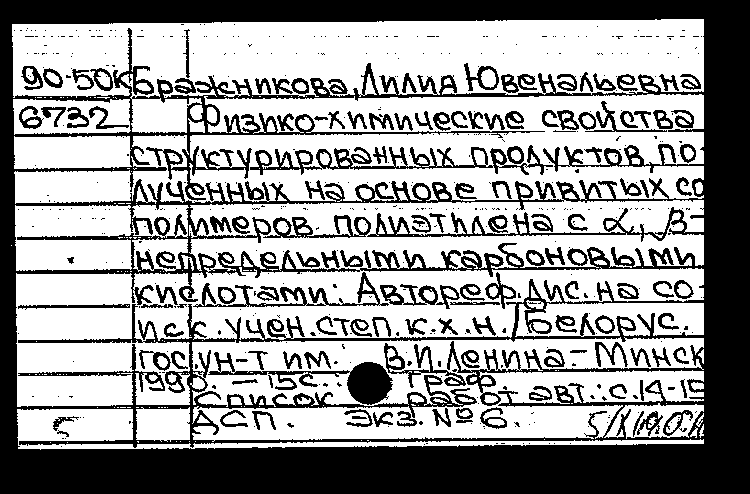 90-50к Бражникова, Лилия Ювенальевна
6732 Физико-химические свойства
структурированных продуктов, по-
лученных на основе привитых со
полимеров полиэтилена с α, β-
непредельными карбоновыми
кислотами: Автореф. дис. на со-
иск. учен. степ. к.х.н. / Белорус.
гос. ун-т им. В.И.Ленина. - Минск
1990. - 15с.: граф.
Список работ авт.: с.14-15
ДСП. Экз. № 6.